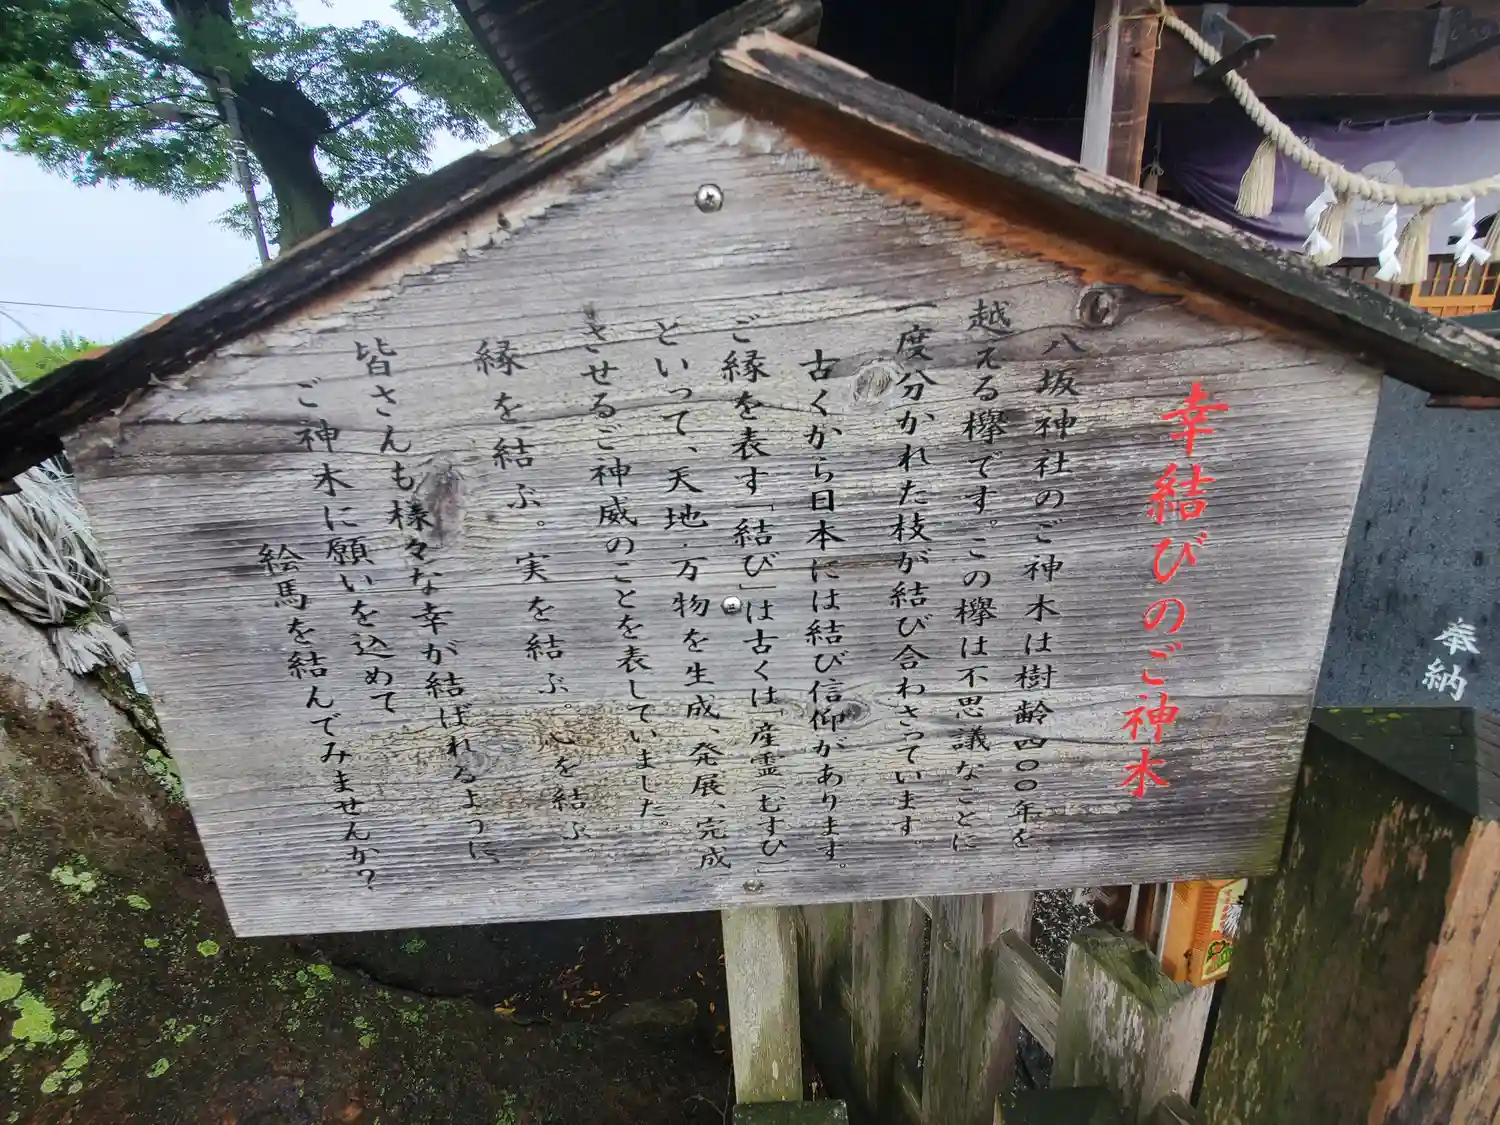 幸結びのご神木
八坂神社のご神木は樹齢四〇〇年を
越える欅です。この欅は不思議なことに
一度分かれた枝が結び合わさっています。
古くから日本には結び信仰があります。
ご縁を表す「結び」は古くは「産霊(むすひ)」
といって、天地・万物を生成、発展、完成
させるご神威のことを表していました。
縁を結ぶ。実を結ぶ。心を結ぶ。
皆さんも様々な幸が結ばれるように、
ご神木に願いを込めて
絵馬を結んでみませんか?
奉納